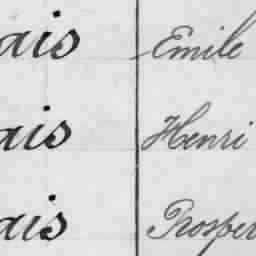 ais Emile
ais Henri
ais Prosper